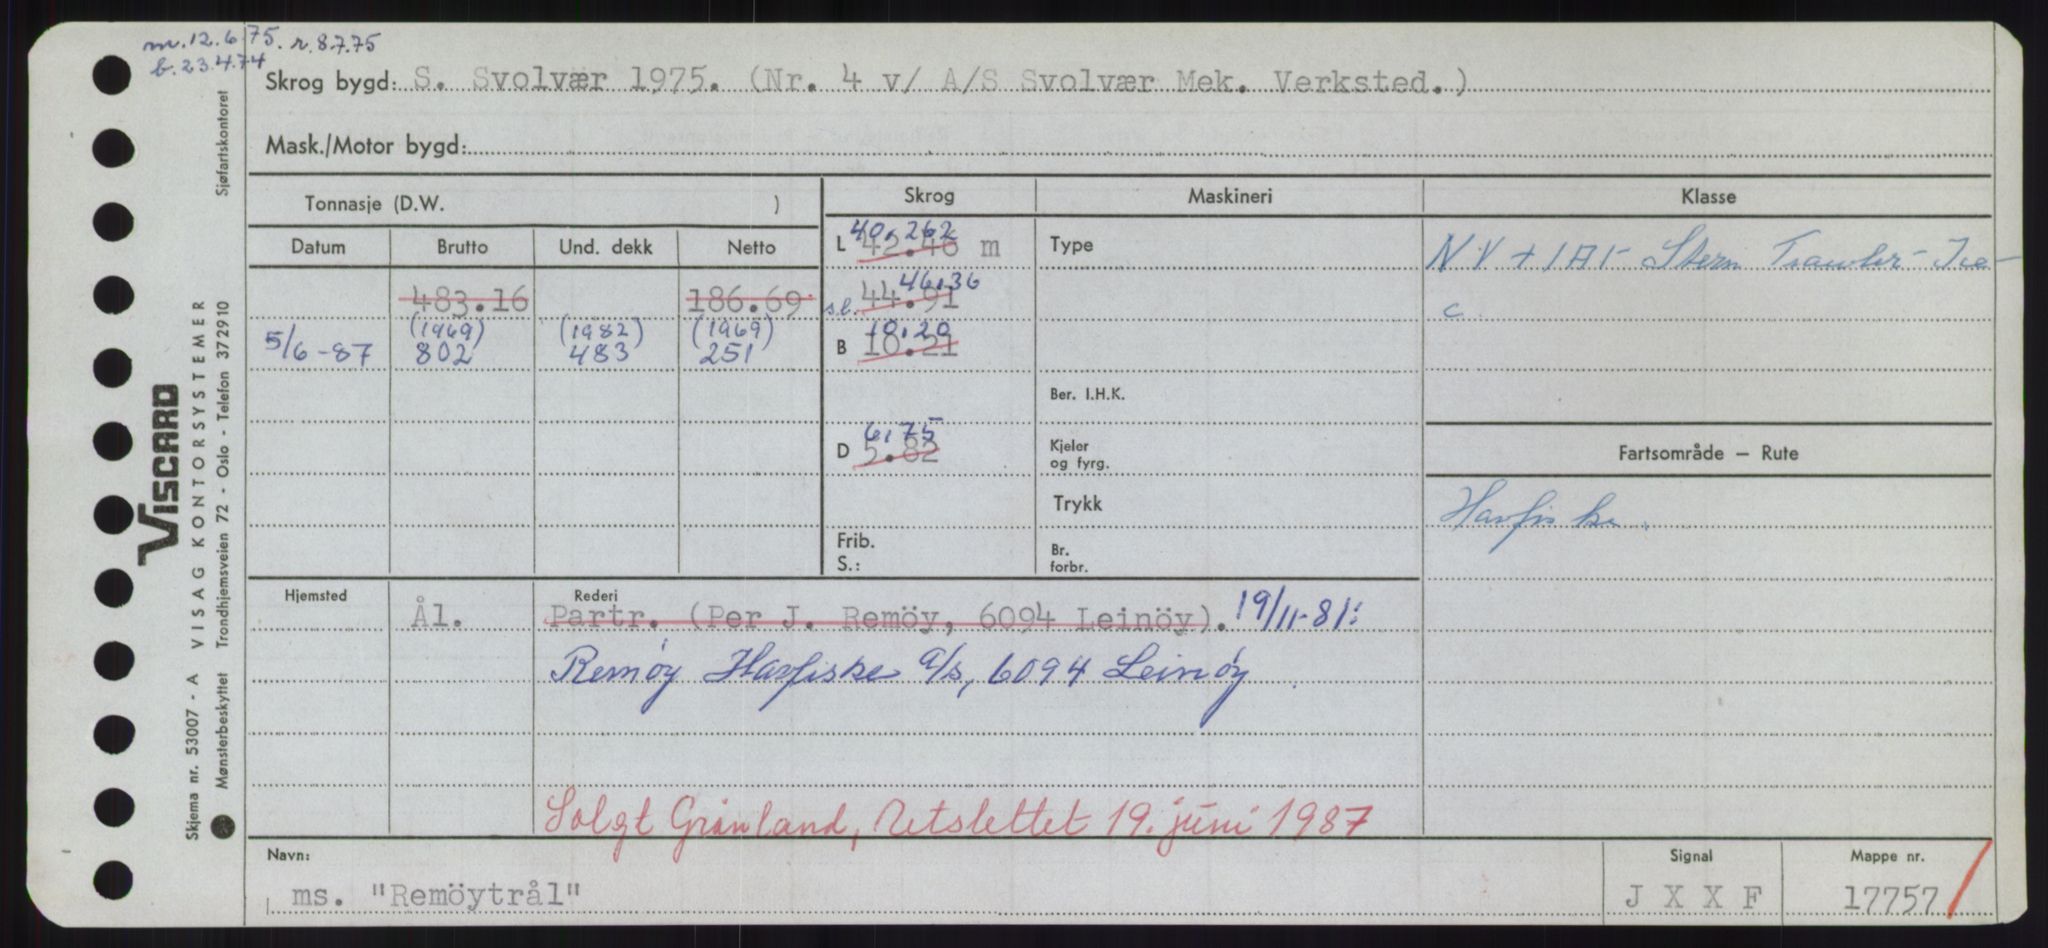 m. 12.6.75. r. 8.7.75
b. 23.4.74
Skrog bygd: S. Svolvær 1975. (Nr. 4 v/ A/S Svolvær Mek. Verksted.)
Mask./Motor bygd:
Sjøfartskontoret
VISCARD
VISAG KONTORSYSTEMER
Trondhjemsveien 72 - Oslo - Telefon 372910
Skjema nr. 53007 - A
Mønsterbeskyttet
Tonnasje (D.W. )
Skrog Maskineri Klasse
Datum Brutto Und. dekk Netto
L 40.262 42.46 m
Type
NV + 1A1 - Stern Trawler - Ice -
C
483.16 186.69
sl. 46.36 44.91
5/6-87 (1969) 802 (1982) 483 (1969) 251
B 10.20 10.21
Ber. I.H.K.
D 6.75 5.82
Kjeler og fyrg.
Fartsområde — Rute
Trykk
Havfiske.
Frib.
S.:
Br. forbr.
Hjemsted Rederi
Ål. Partr. (Per J. Remöy, 6094 Leinöy). 19/11-81:
Remöy Havfiske a/s, 6094 Leinöy
Solgt Grønland, Utslettet 19. juni 1987
Navn: Signal Mappe nr.
ms. "Remöytrål" J X X F 17757